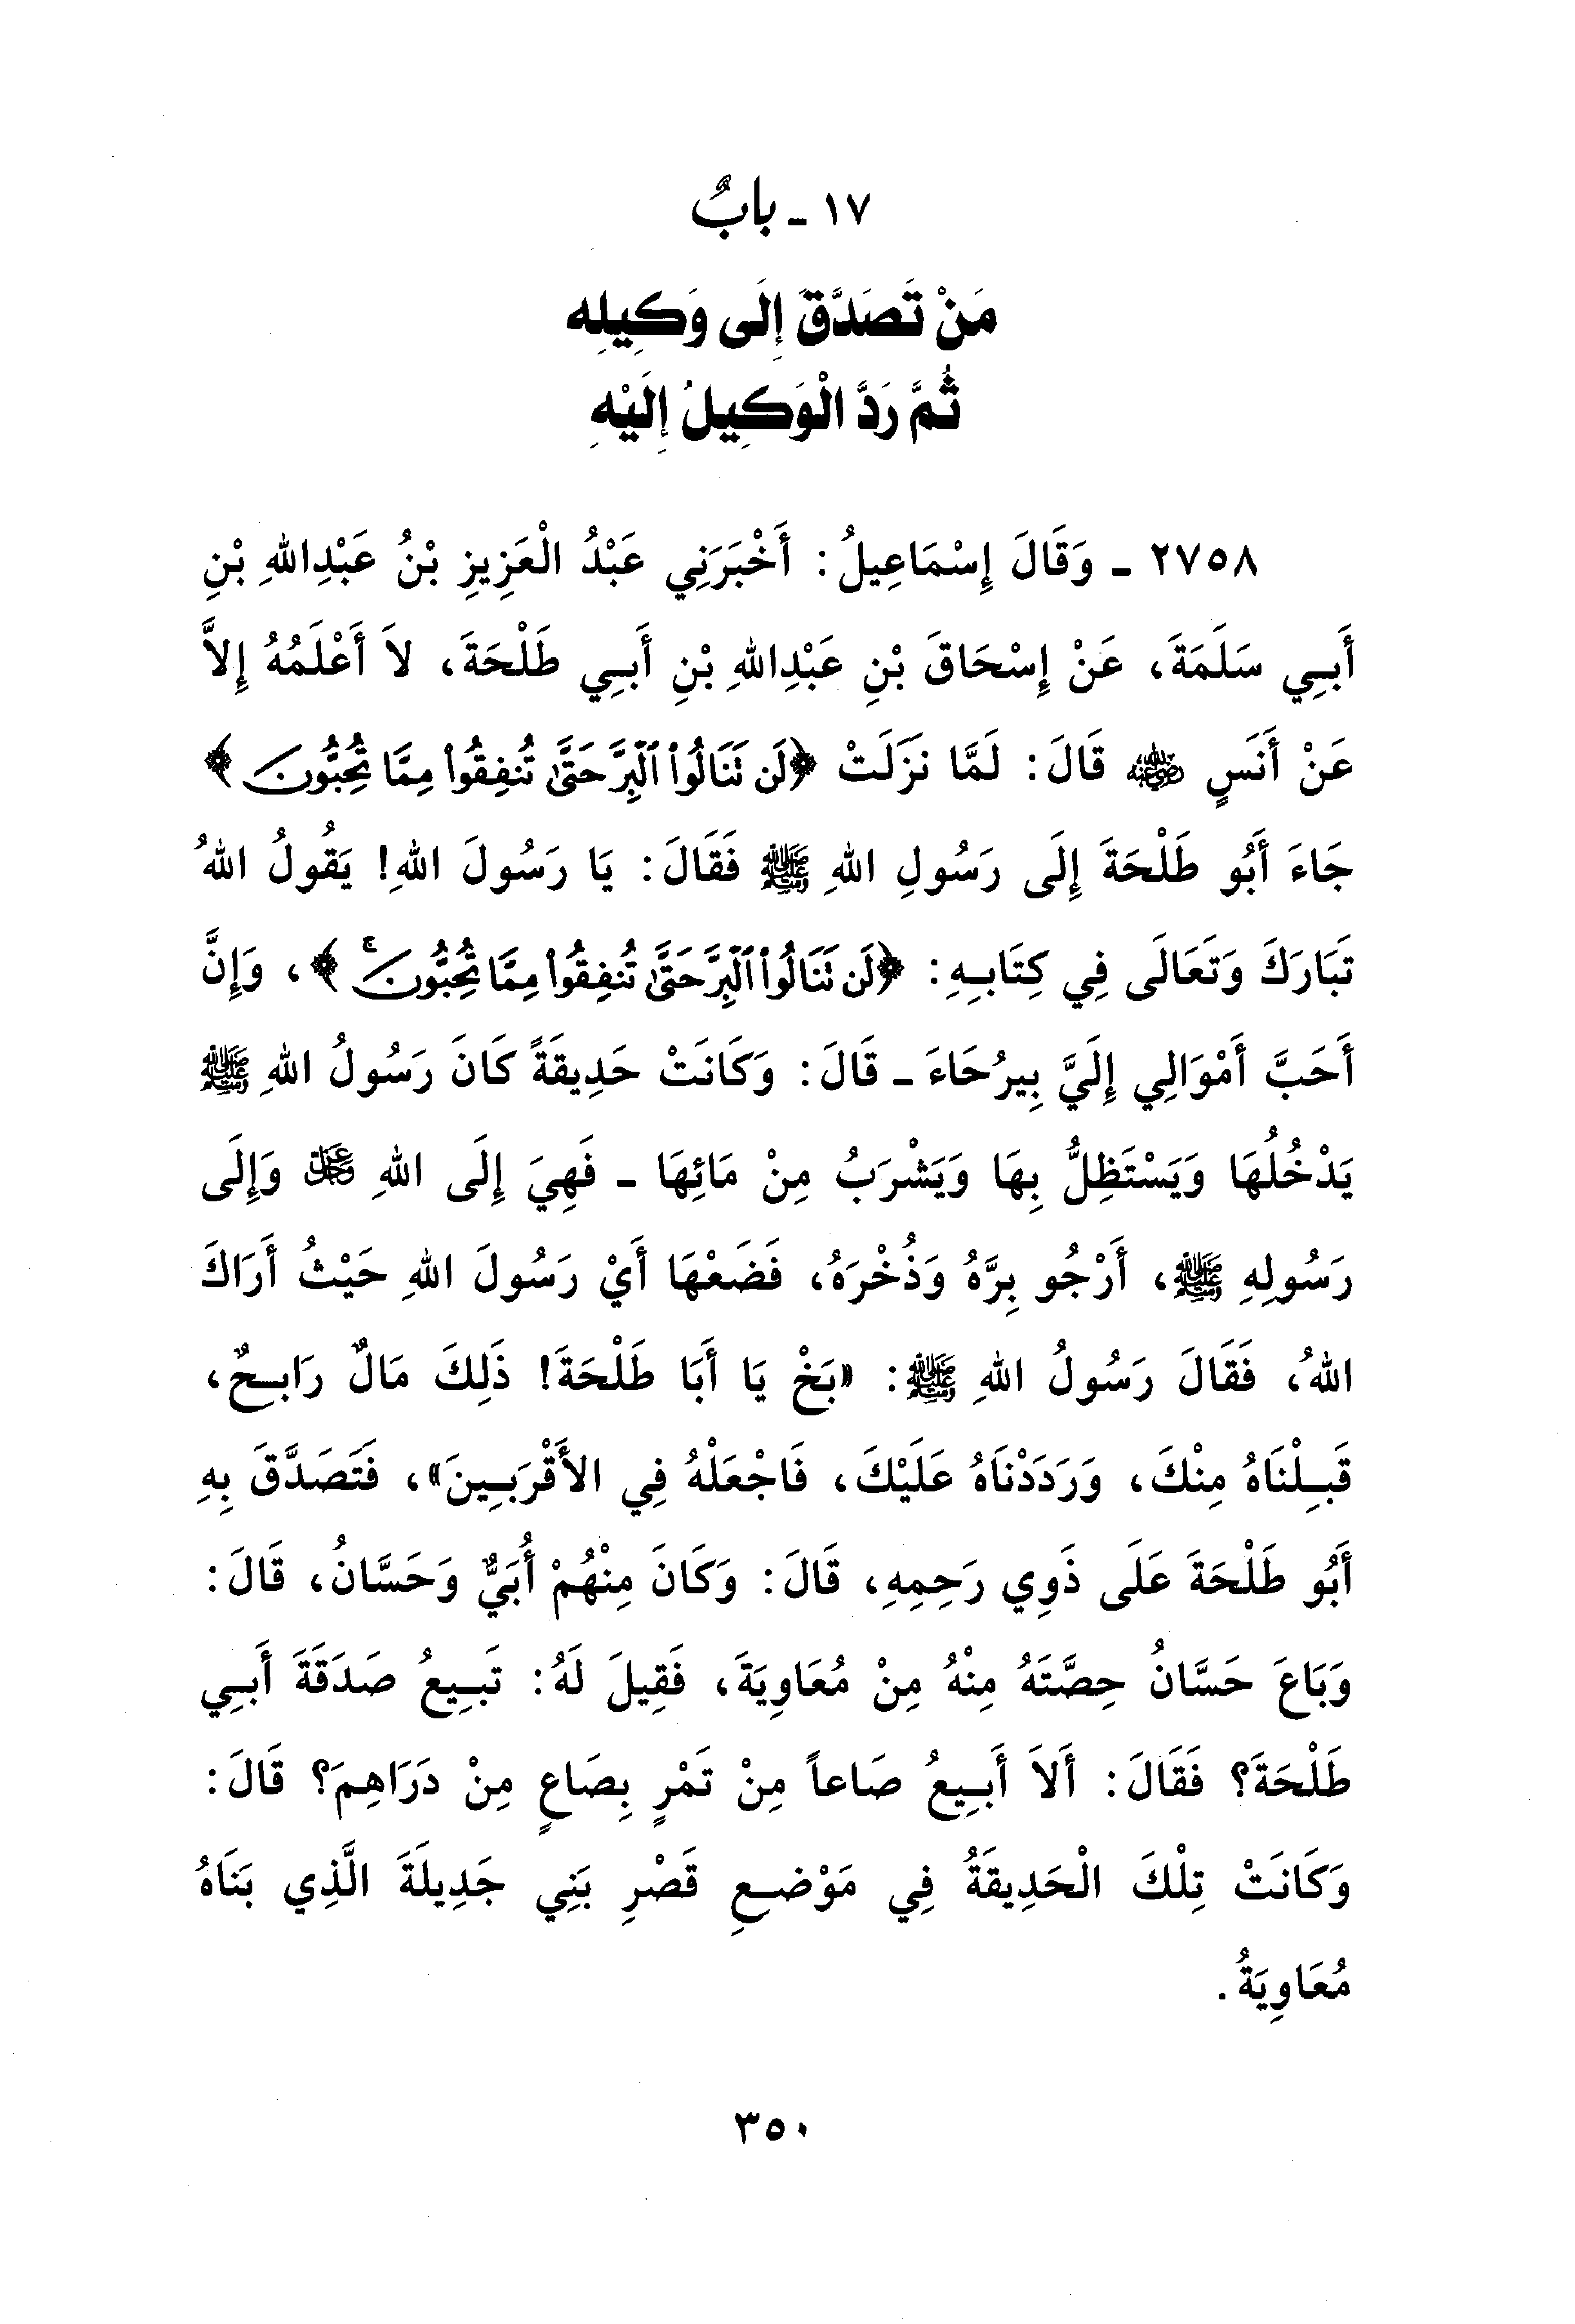 ١٧ ـ بابٌ
مَنْ تَصَدَّقَ إِلَى وَكِيلِه
ثُمَّ رَدَّ الْوَكِيلُ إِلَيْهِ
٢٧٥٨ ـ وَقَالَ إِسْمَاعِيلُ: أَخْبَرَنِي عَبْدُ الْعَزِيزِ بْنُ عَبْدِاللهِ بْنِ
أَبِي سَلَمَةَ، عَنْ إِسْحَاقَ بْنِ عَبْدِاللهِ بْنِ أَبِي طَلْحَةَ، لاَ أَعْلَمُهُ إِلاَّ
عَنْ أَنَسٍ ﵁ قَالَ: لَمَّا نَزَلَتْ ﴿لَن نَنَالُوا۟ ٱلْبِرَّ حَتَّىٰ تُنفِقُوا۟ مِمَّا تُحِبُّونَ﴾
جَاءَ أَبُو طَلْحَةَ إِلَى رَسُولِ اللهِ ﷺ فَقَالَ: يَا رَسُولَ اللهِ! يَقُولُ اللهُ
تَبَارَكَ وَتَعَالَى فِي كِتَابِهِ: ﴿لَن نَنَالُوا۟ ٱلْبِرَّ حَتَّىٰ تُنفِقُوا۟ مِمَّا تُحِبُّونَۚ﴾، وَإِنَّ
أَحَبَّ أَمْوَالِي إِلَيَّ بِيرُحَاءَ ـ قَالَ: وَكَانَتْ حَدِيقَةً كَانَ رَسُولُ اللهِ ﷺ
يَدْخُلُهَا وَيَسْتَظِلُّ بِهَا وَيَشْرَبُ مِنْ مَائِهَا ـ فَهِيَ إِلَى اللهِ ﷿ وَإِلَى
رَسُولِهِ ﷺ، أَرْجُو بِرَّهُ وَذُخْرَهُ، فَضَعْهَا أَيْ رَسُولَ اللهِ حَيْثُ أَرَاكَ
اللهُ، فَقَالَ رَسُولُ اللهِ ﷺ: «بَخْ يَا أَبَا طَلْحَةَ! ذَلِكَ مَالٌ رَابِحٌ،
قَبِلْنَاهُ مِنْكَ، وَرَدَدْنَاهُ عَلَيْكَ، فَاجْعَلْهُ فِي الأَقْرَبِينَ»، فَتَصَدَّقَ بِهِ
أَبُو طَلْحَةَ عَلَى ذَوِي رَحِمِهِ، قَالَ: وَكَانَ مِنْهُمْ أُبَيٌّ وَحَسَّانُ، قَالَ:
وَبَاعَ حَسَّانُ حِصَّتَهُ مِنْهُ مِنْ مُعَاوِيَةَ، فَقِيلَ لَهُ: تَبِيعُ صَدَقَةَ أَبِي
طَلْحَةَ؟ فَقَالَ: أَلاَ أَبِيعُ صَاعاً مِنْ تَمْرٍ بِصَاعٍ مِنْ دَرَاهِمَ؟ قَالَ:
وَكَانَتْ تِلْكَ الْحَدِيقَةُ فِي مَوْضِعِ قَصْرِ بَنِي جَدِيلَةَ الَّذِي بَنَاهُ
مُعَاوِيَةُ.
٣٥٠